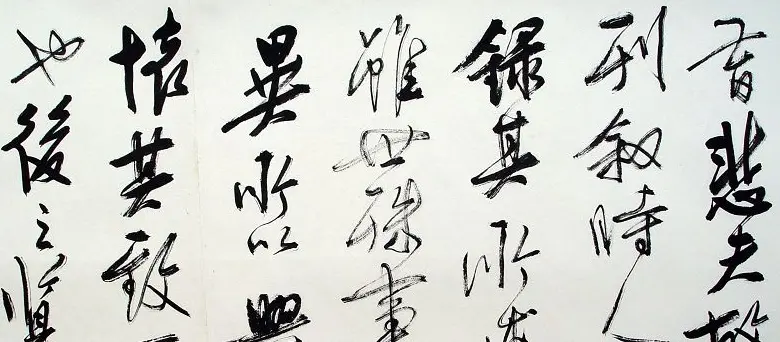 昔悲夫故
列叙時人
録其所述
雖世殊事
異所以興
懷其致一
也後之覽